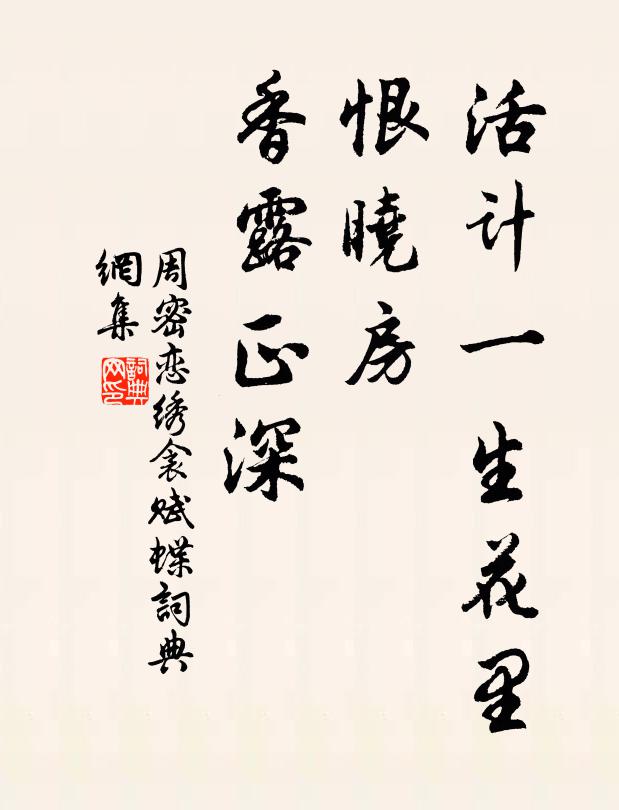 活计一生花里
恨曉房
香露正深
周密恋绣衾赋蝶詞典
網集
詞典
网印